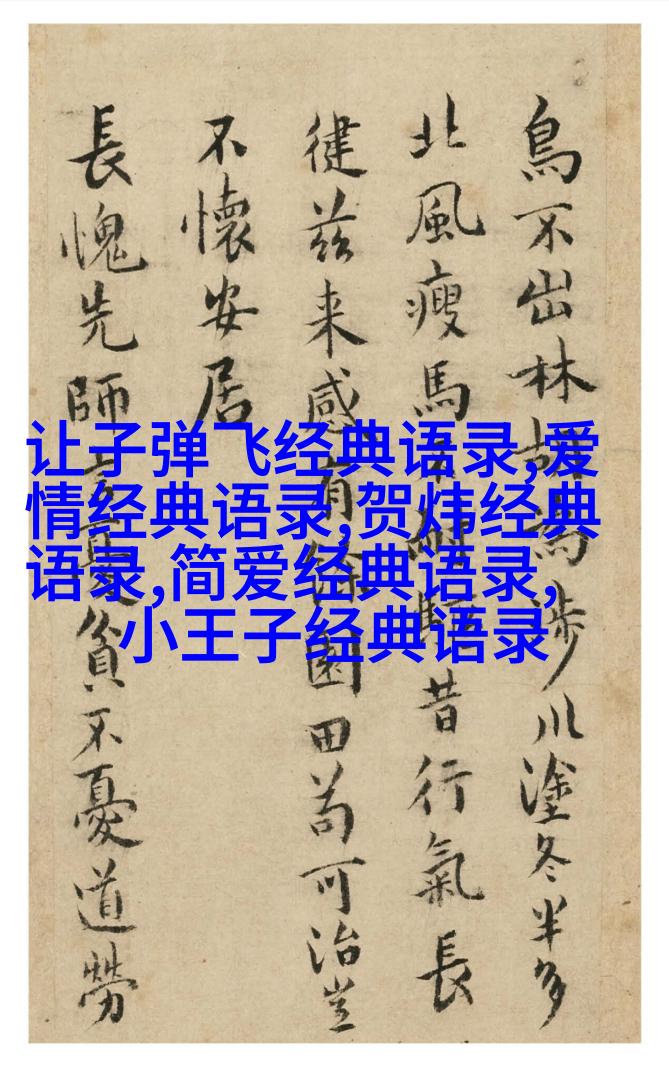 鳥不出林胡為涉川塗冬半多
北風瘦馬耐驅昔行氣長
健茲来感有餘園田苟可治豈
不懷安居
長愧先師言憂貧不憂道勞
让子弹飞经典语录,爱
情经典语录,贺炜经典
语录,简爱经典语录,
小王子经典语录